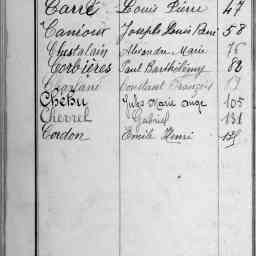 Carré Louis Pierre 47
Camour Joseph Louis René 58
Chatalain Alexandre Marie 76
Corbières Paul Barthélémy 80
Constant François
Chebu Jules Marie Ange 105
Chevrel Gabriel 131
Cordon Emile Henri